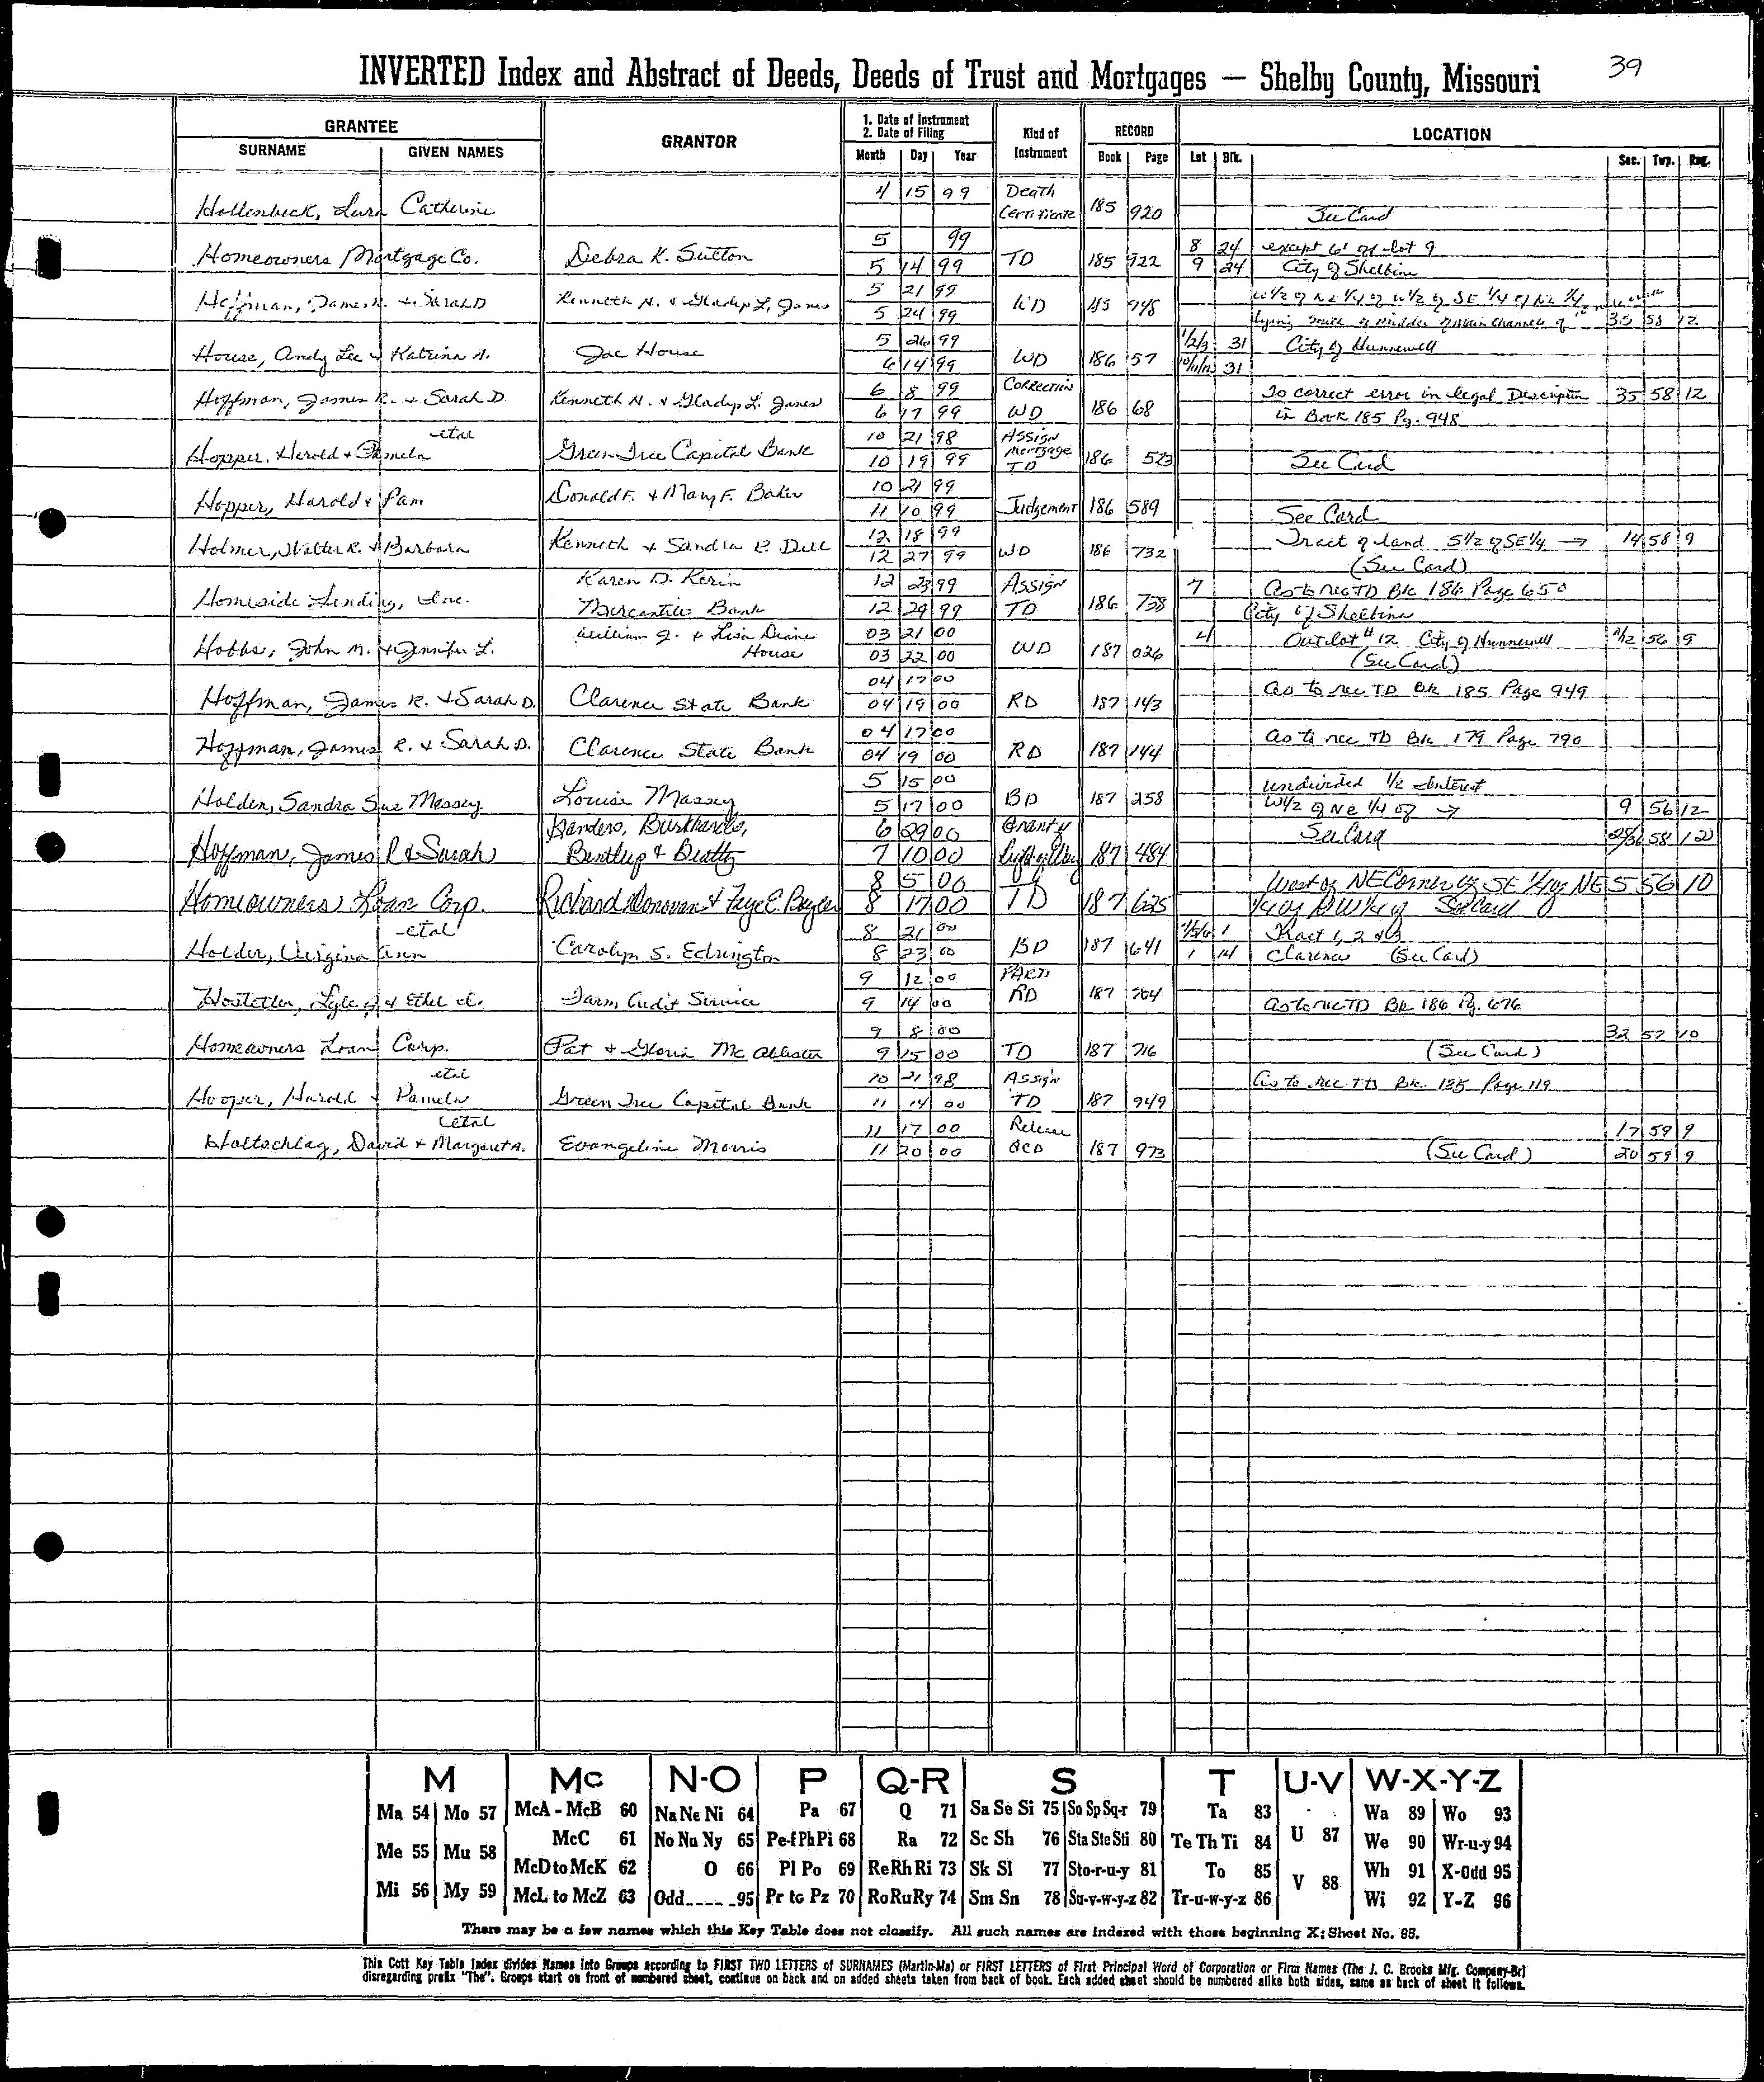 39
INVERTED Index and Abstract of Deeds, Deeds of Trust and Mortgages — Shelby County, Missouri
GRANTEE
SURNAME GIVEN NAMES GRANTOR 1. Date of Instrument 2. Date of Filing Month Day Year Kind of Instrument RECORD Book Page LOCATION Lot Blk. Sec. Twp. Rng.
4 15 99 Death
Hollenbeck, Lura Catherine Certificate 185 920 See Card
5 99 8 24 except 6' of lot 9
Homeowners Mortgage Co. Debra K. Sutton 5 14 99 TD 185 922 9 24 City of Shelbina
5 21 99 W1/2 of NE 1/4 of W1/2 of SE 1/4 of NE 1/4
Hoffman, James R. & Sarah D Kenneth N. & Gladys L. Janes 5 24 99 WD 185 948 lying South of Middle of Main Channel of 35 58 12
5 26 99 1/2/3 31 City of Hunnewell
House, Andy Lee & Katrina A. Joe House 6 14 99 WD 186 57 10/11/12 31
6 8 99 Correction To correct error in legal Description 35 58 12
Hoffman, James R. & Sarah D. Kenneth N. & Gladys L. Janes 6 17 99 WD 186 68 in Book 185 Pg. 948
etal 10 21 98 Assign Mortgage
Hopper, Harold & Pamela Green Tree Capital Bank 10 19 99 TD 186 523 See Card
10 21 99
Hopper, Harold & Pam Donald F. & Mary F. Baker 11 10 99 Judgement 186 589 See Card
12 18 99 Tract of land S1/2 of SE1/4 → 14 58 9
Holmer, Walter R. & Barbara Kenneth & Sandra P. Dill 12 27 99 WD 186 732 (See Card)
Karen D. Kerin 12 23 99 Assign 7 as to rec TD Bk 186 Page 650
Homeside Lending, Inc. Mercantile Bank 12 29 99 TD 186 738 City of Shelbina
William J. & Lisa Diane 03 21 00 4 Outlot #12 City of Hunnewell 56 9
Hobbs, John M. & Jennifer L. House 03 22 00 WD 187 026 (See Card)
04 17 00 as to rec TD Bk 185 Page 949
Hoffman, James R. & Sarah D. Clarence State Bank 04 19 00 RD 187 143
04 17 00 as to rec TD Bk 179 Page 790
Hoffman, James R. & Sarah D. Clarence State Bank 04 19 00 RD 187 144
5 15 00 undivided 1/2 Interest
Holden, Sandra Sue Massey Louise Massey 5 17 00 BD 187 258 W1/2 of NE 1/4 of → 9 56 12
Sanders, Burkhards, 6 29 00 See Card 58 12
Hoffman, James R & Sarah Bentlup & Beatty 7 10 00 187 484
8 5 00 West of NE Corner of SE 1/4 of NE 5 56 10
Homeowners Loan Corp. Richard Donovan & Faye E. 8 17 00 TD 187 625 1/4 of SW1/4 of See Card
etal 8 21 00 1 Tract 1, 2 & 3
Holder, Virginia Ann Carolyn S. Edrington 8 23 00 BD 187 641 1 14 Clarence (See Card)
9 12 00 Partl
Hostetler, Lyle J. & Ethel E. Farm Credit Service 9 14 00 RD 187 704 as to rec TD Bk 186 Pg. 676
9 8 00 32 57 10
Homeowners Loan Corp. Pat & Gloria McAllister 9 15 00 TD 187 716 (See Card)
etal 10 21 98 Assign as to rec TD Bk. 185 Page 119
Hooper, Harold & Pamela Green Tree Capital Bank 11 14 00 TD 187 949
etal 11 17 00 Release 17 59 9
Holtschlag, David & Margaret A. Evangeline Morris 11 20 00 QCD 187 973 (See Card) 20 59 9
M Mc N-O P Q-R S T U-V W-X-Y-Z
Ma 54 Mo 57 McA - McB 60 Na Ne Ni 64 Pa 67 Q 71 Sa Se Si 75 So Sp Sq-r 79 Ta 83 Wa 89 Wo 93
Me 55 Mu 58 McC 61 No Nu Ny 65 Pe-f Ph Pi 68 Ra 72 Sc Sh 76 Sta Ste Sti 80 Te Th Ti 84 U 87 We 90 Wr-u-y 94
McD to McK 62 O 66 Pl Po 69 Re Rh Ri 73 Sk Sl 77 Sto-r-u-y 81 To 85 V 88 Wh 91 X-Odd 95
Mi 56 My 59 McL to McZ 63 Odd 95 Pr to Pz 70 Ro Ru Ry 74 Sm Sn 78 Su-v-w-y-z 82 Tr-u-w-y-z 86 Wi 92 Y-Z 96
There may be a few names which this Key Table does not classify. All such names are indexed with those beginning X; Sheet No. 95.
This Cott Key Table Index divides Names into Groups according to FIRST TWO LETTERS of SURNAMES (Martin-Ma) or FIRST LETTERS of First Principal Word of Corporation or Firm Names (The J. C. Brooks Mfg. Company-Br)
disregarding prefix "The". Groups start on front of numbered sheet, continue on back and on added sheets taken from back of book. Each added sheet should be numbered alike both sides, same as back of sheet it follows.